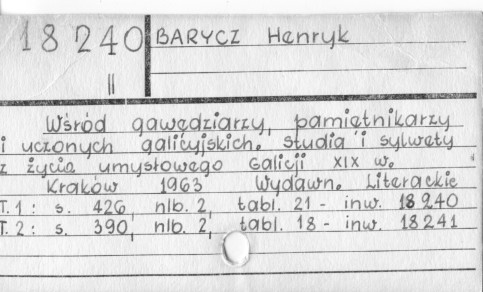 18 240 BARYCZ Henryk
II
Wśród gawędziarzy, pamiętnikarzy
i uczonych galicyjskich. Studia i sylwety
z życia umysłowego Galicji XIX w.
Kraków 1963 Wydawn. Literackie
T. 1 : s. 426, nlb. 2, tabl. 21 - inw. 18240
T. 2 : s. 390, nlb. 2, tabl. 18 - inw. 18241